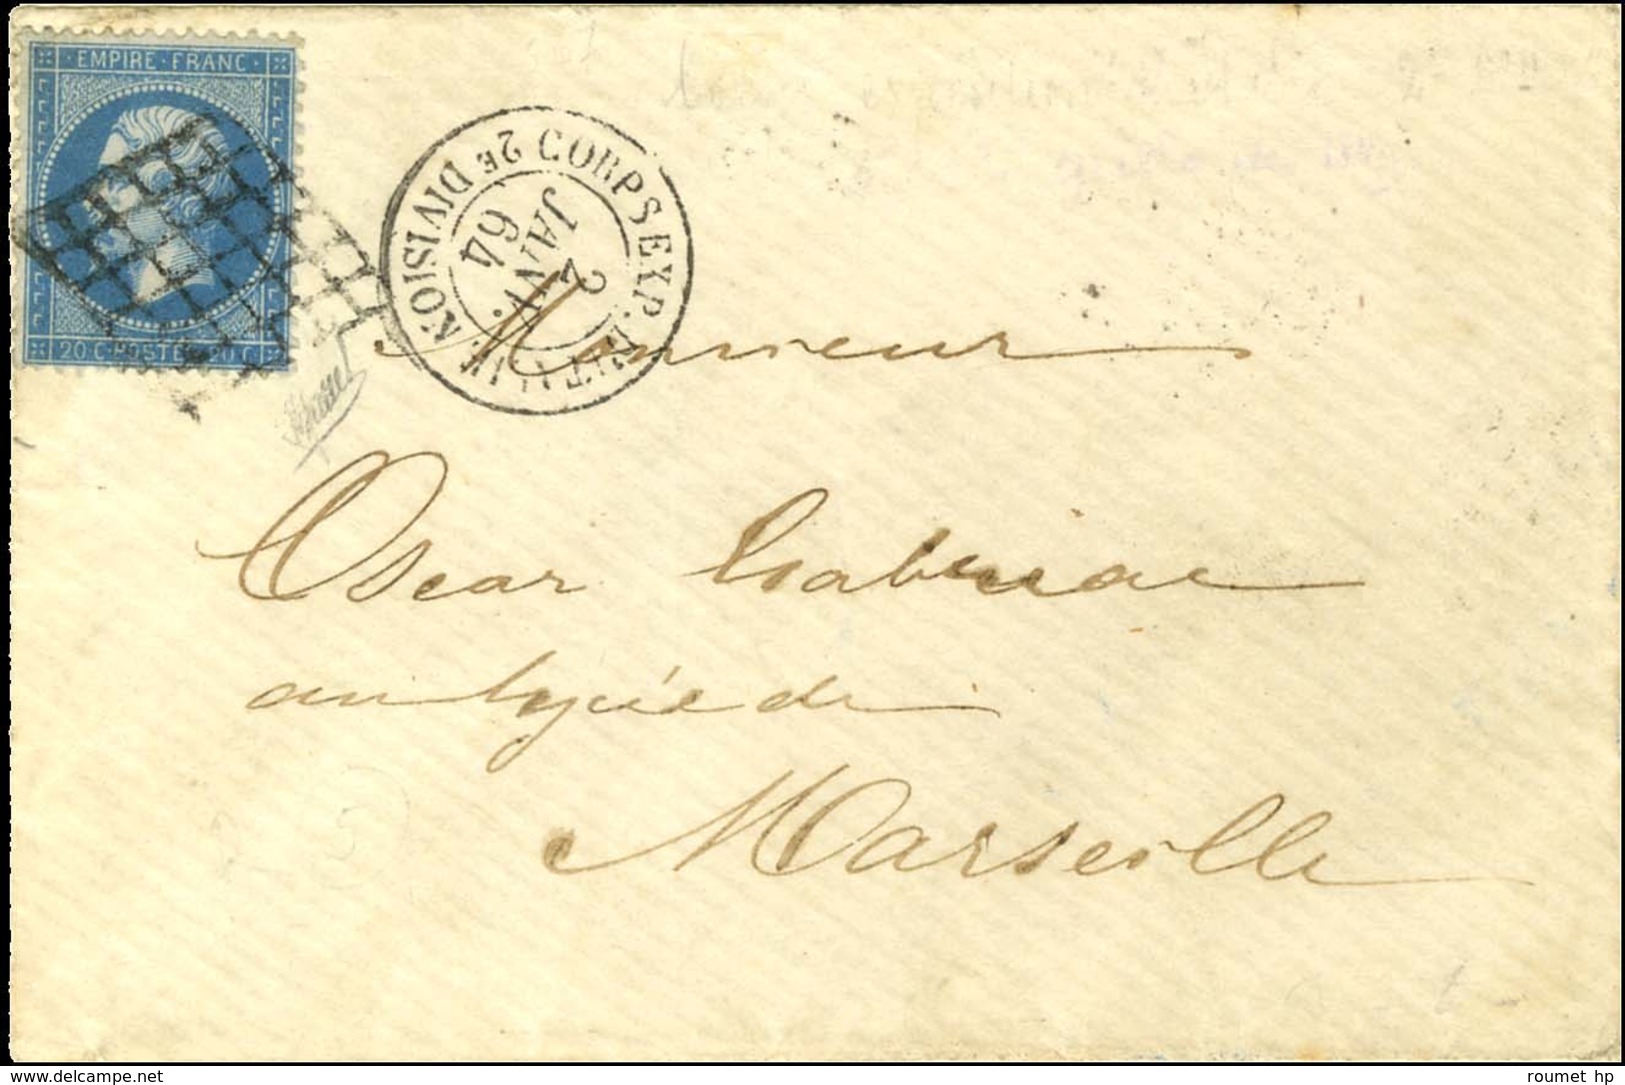 EMPIRE · FRANC ·
20 C · POSTE · 20 C
CORPS EXP. D'ITALIE 2E DIVISION
2
JANV.
64
Monsieur
Oscar
au lycée de
Marseille
delcampe.net
roumet hp